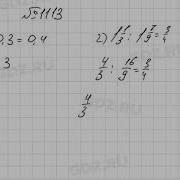 №1113
0,3 = 0,4
2) 1 1/3 : 1 7/9 = 3/4
3
4/3 : 16/9 = 3/4
4/3